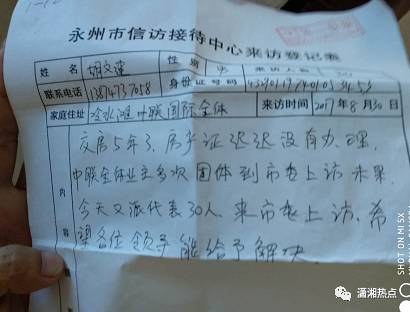 永州市信访接待中心来访登记表
姓名 胡文建 性别 男 来访人数 30
联系电话 13874737058 身份证号码
家庭住址 冷水滩中联国际全体 来访时间 2017年8月30日
内容
交房5年了、房产证迟迟没有办理.
中联全体业主多次团体到市委上访未果.
今天又派代表30人.来市委上访.希
望各位领导能给予解决.
SHOT ON MI 5X
潇湘热点